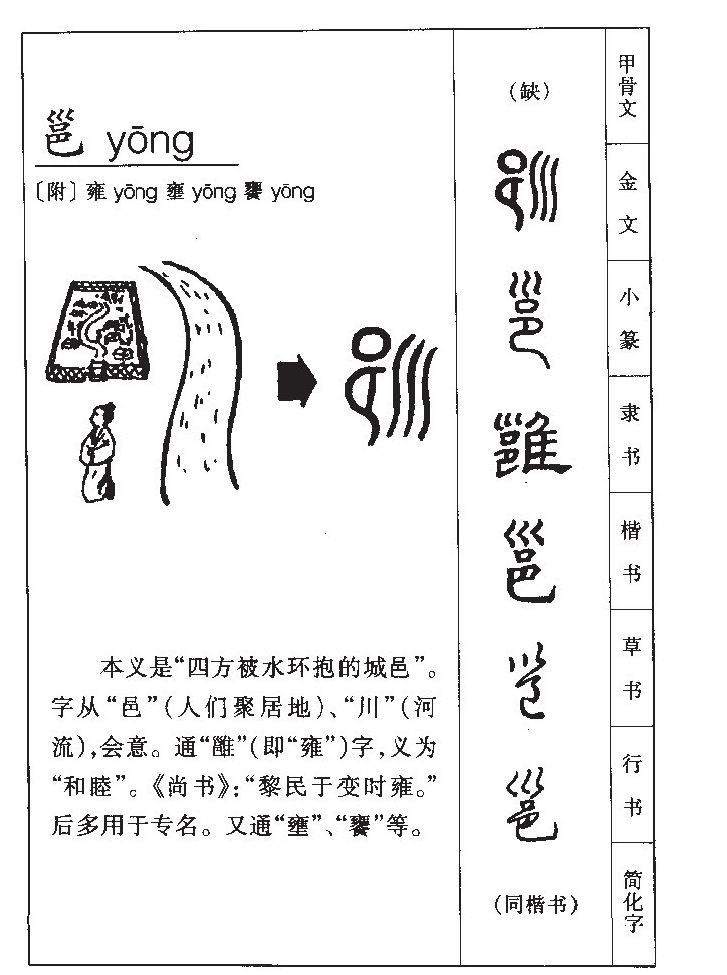 邕 yōng
〔附〕雍 yōng 壅 yōng 饔 yōng
本义是“四方被水环抱的城邑”。
字从“邑”(人们聚居地)、“川”(河
流),会意。通“雝”(即“雍”)字,义为
“和睦”。《尚书》:“黎民于变时雍。”
后多用于专名。又通“壅”、“饔”等。
(缺)
甲骨文
邕
金文
邕
小篆
雝
隶书
邕
楷书
邕
草书
邕
行书
(同楷书)
简化字